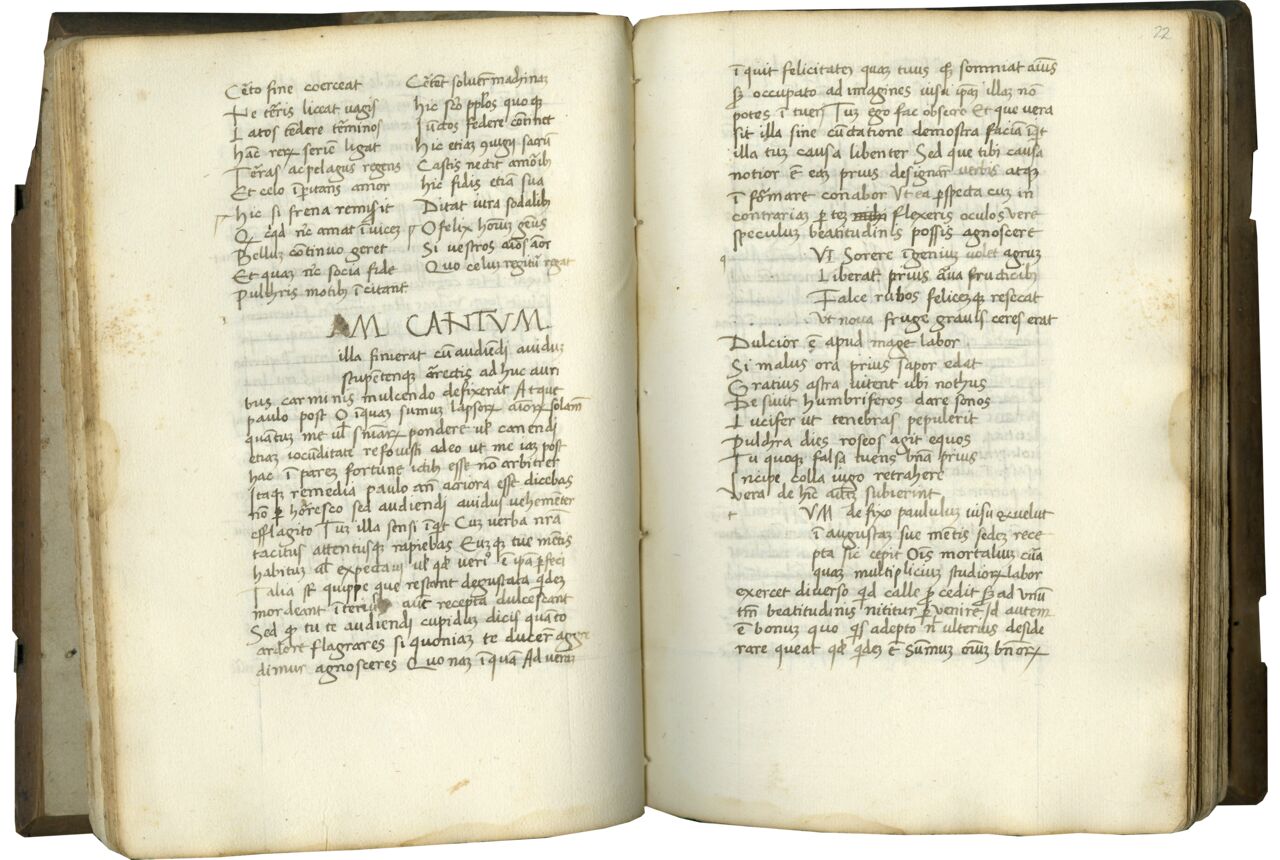 Cẽto fine coerceat
Ne tẽris liceat vagis
Latos tẽdere tẽminos
Hãc rerꝝ seriẽ ligat
Terras ac pelagus regens
Et celo ĩperitans amor
Hic si frena remisĩt
Qcqd nũc amat ĩvicez
Belluz cõtinuo geret
Et quaz nũc socia fide
Pulchris motibꝰ ĩcitant
Cẽtent solverẽ machinaz
Hic sẽo pplos quoqꝫ
Iũctos federe cõtinet
Hic etiaz ꝯiugii sacrũ
Castis nectit amõibꝰ
Hic fidis etiã sua
Dictat iura sodalibꝰ
O felix homĩũz genus
Si vestros aĩos aõr
Quo celuz regitũr regat
AM CANTVM
illa finierat cũ audiendi aviduz
stupẽtemqꝫ ãrectis ad huc auri
bus carminis mulcendo defixerat Atque
paulo post O ĩquaz sumuz lapsorꝝ aĩorꝝ solam
quantuz me vl sñiarꝝ pondere vl canendi
etiaz iocũditate refovisti adeo ut me iaz post
hac ĩ parez fortune ictibꝰ esse nõ arbitrer
Itaqꝫ remedia paulo añ acriora esse dicebas
nõ ꝑ hõresco sed audiendi avidus vehemẽter
efflagito Tuz illa sensi ĩqt Cuz verba nr̃a
tacitus attentusqꝫ rapiebas Euzqꝫ tue mẽtis
habituz vl expectavi vl qd veriꝰ ẽ ipa ꝑfeci
Talia st quippe que restant degustata qdez
mordeant ĩteriꝰ aũt recepta dulcescant
Sed qꝫ tu te audiendi cupiduz dicis quãto
ardore flagrares si quoniaz te ducere aggre
dimur agnosceres Quo naz ĩquã Ad veraz
22
ĩquit felicitatez quaz tuus qꝫ somniat aĩus
Sꝫ occupato ad imagines visu ipaz illaz nõ
potes ĩtueri Tuz ego fac obsecro Et que vera
sit illa sine cũctatione demostra faciã ĩqt
illa tuz causa libenter Sed que tibi causa
notior ẽ eaz prius designar verbis atqꝫ
ĩ formare conabor Ut ea ꝑspecta cuz in
contrariaz ꝑtez flexeris oculos vere
speculuz beatitudinis possis agnoscere
q VI Serere ĩgeniuz volet agruz
Liberat prius arva fruticibꝰ
Falce rubos felicezqꝫ resecat
Ut nova fruge gravis ceres erat
Dulcior ẽ apud mage labor
Si malus ora prius sapor edat
Gratius astra nitent ubi nothus
Desinit humbriferos dare sonos
Lucifer ut tenebras pepulerit
Pulchra dies roseos agit equos
Tu quoqꝫ falsa tuens bña prius
Incipe colla iugo retrahere
Vera de hĩc aĩuz subierint
t VM defixo paululuz visu ⁊ velut
ĩ augustaz sue mẽtis sedez rece
pta sic cepit Oĩs mortaliuz cũa
quaz multipliciuz studiorꝝ labor
exercet diverso qd calle ꝓcedit Sꝫ ad unũ
tñ beatitudinis nititur ꝑvenire Id autem
ẽ bonuz quo qs adepto nl ulterius deside
rare queat qd qdez ẽ sumuz oĩuz bñorꝝ